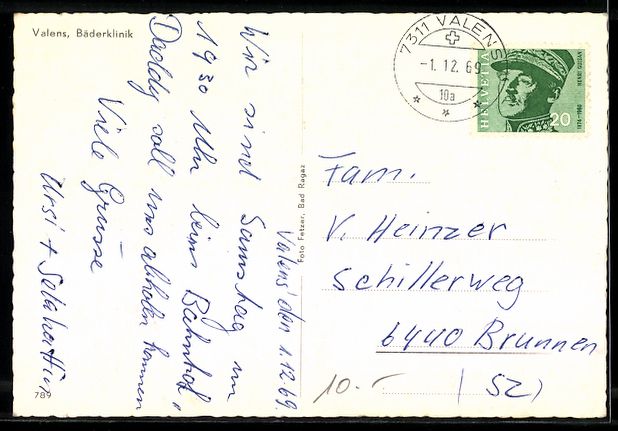 Valens, Bäderklinik
7311 VALENS
-1. 12. 69
10a
HELVETIA
HENRI GUISAN
1874-1960
20
Valens den 1.12.69.
Wir sind Samstag um
1930 Uhr beim Bahnhof,
Daddy soll uns abholen kommen
Viele Grüsse
Ursi +
Foto Fetzer, Bad Ragaz
Fam.
V. Heinzer
Schillerweg
6440 Brunnen
(SZ)
10.-
789